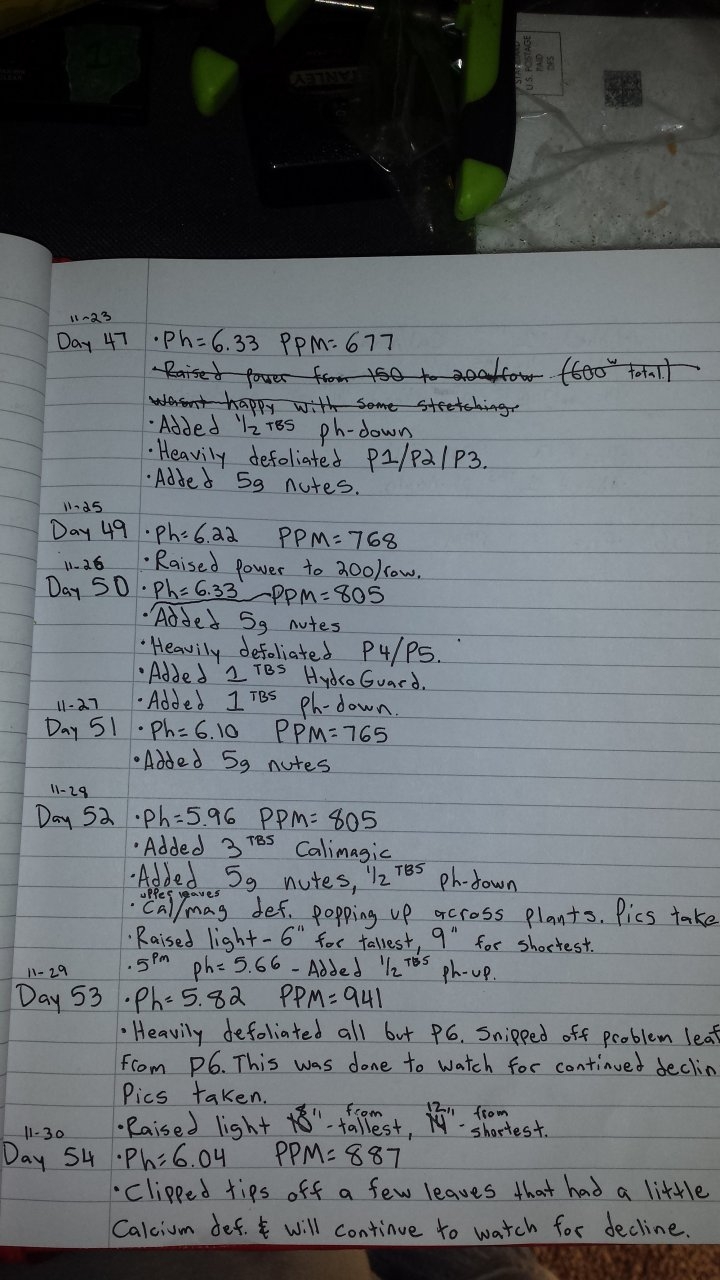 STANLEY
U.S. POSTAGE
PAID
11-23
Day 47 · Ph= 6.33 PPM= 677
· Raised power from 150 to 200/row (600w total)
wasnt happy with some stretching.
· Added 1/2 TBS ph-down
· Heavily defoliated P1/P2/P3.
· Added 5g nutes.
11-25
Day 49 · Ph= 6.22 PPM= 768
· Raised power to 200/row.
11-26
Day 50 · Ph= 6.33 PPM= 805
· Added 5g nutes
· Heavily defoliated P4/P5.
· Added 1 TBS HydroGuard.
· Added 1 TBS ph-down.
11-27
Day 51 · Ph= 6.10 PPM= 765
· Added 5g nutes
11-28
Day 52 · Ph= 5.96 PPM= 805
· Added 3 TBS Calimagic
· Added 5g nutes, 1/2 TBS ph-down
upper leaves
· Cal/mag def. popping up across plants. Pics take
· Raised light - 6" for tallest, 9" for shortest.
· 5pm ph= 5.66 - Added 1/2 TBS ph-up.
11-29
Day 53 · Ph= 5.82 PPM= 941
· Heavily defoliated all but P6. Snipped off problem leaf
from P6. This was done to watch for continued declin
Pics taken.
· Raised light 8" - from tallest, 12" - from shortest.
11-30
Day 54 · Ph= 6.04 PPM= 887
· Clipped tips off a few leaves that had a little
Calcium def. & will continue to watch for decline.